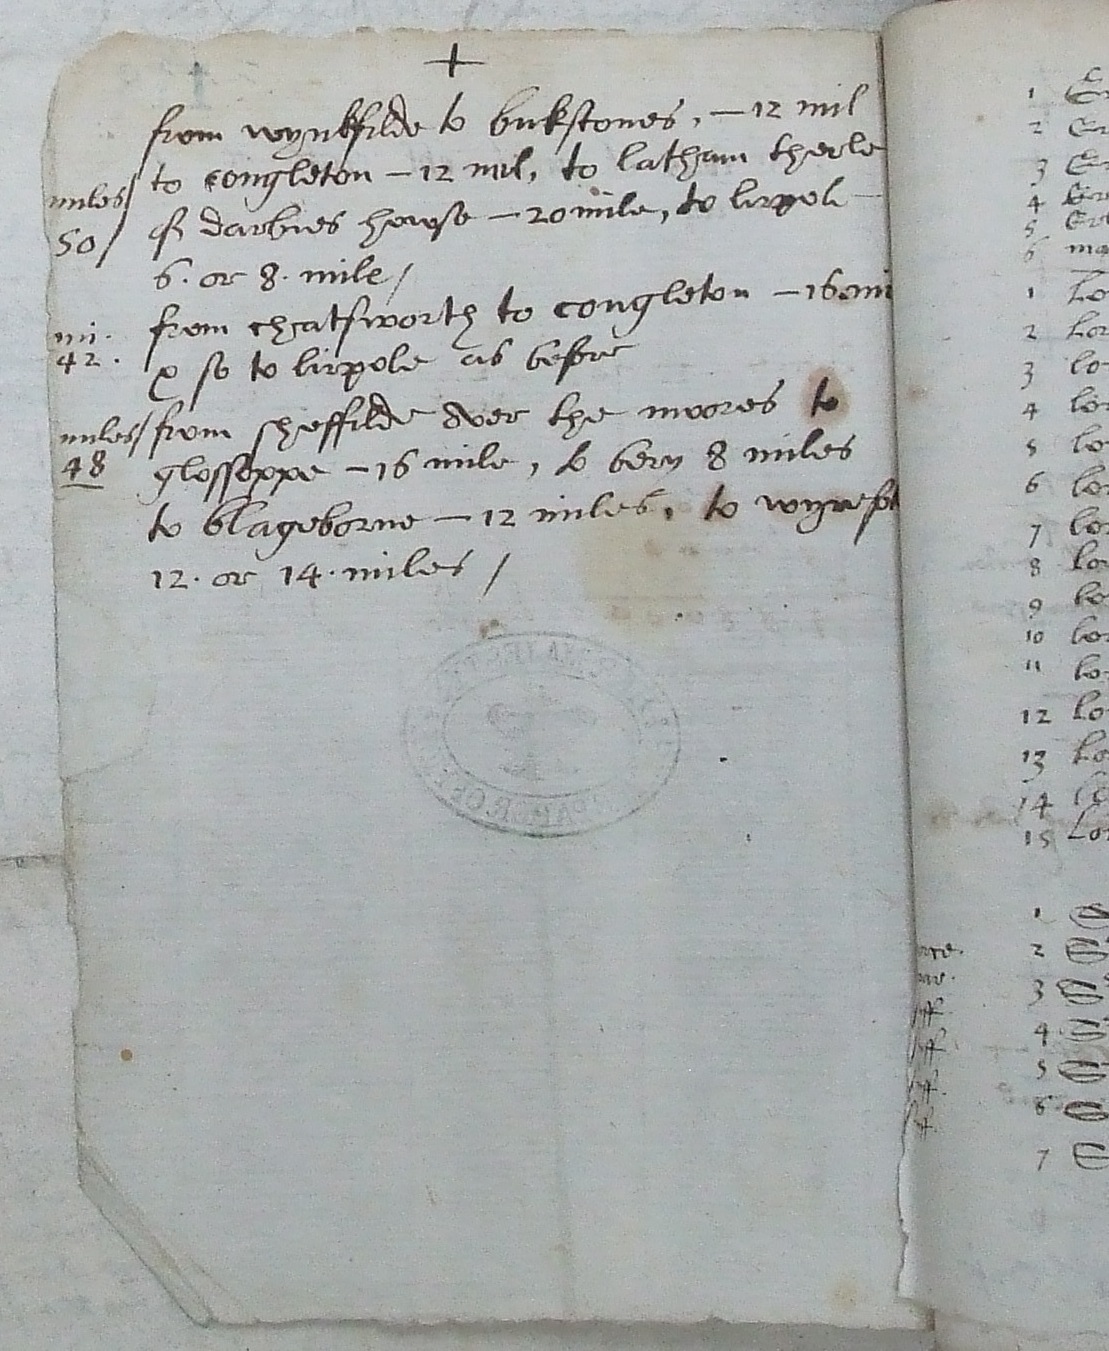 +
from wynkfilde to bukstones, – 12 mil
to congleton – 12 mil, to latham therle
miles/
50/
of darbies howse – 20 mile, to lirpole –
6. or 8. mile /
from chatsworth to congleton – 16 mi
mi.
42.
& so to lirpole as before
miles/ from sheffilde over the moores to
48
glossoppe – 16 mile, to bery 8 miles
to blageborne – 12 miles, to
12. or 14. miles /
1
2
3
4
5
6
1 Lo
2 Lor
3 lo
4 lor
5 lo
6 lo
7 lor
8 lor
9 lo
10 lor
11 lo
12 lo
13 lo
14 lo
15 Lor
1
2
3
4
5
6
7